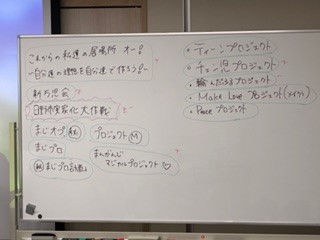 これからの私達の居場所 オー!
〜自分達の理想を自分達で作ろう!〜
新万児会
大作戦
まじオプ
プロジェクト M
まじプロ
㊙まじプロ計画
まんがんじ
マジカルプロジェクト♡
・ティーンプロジェクト
・チェン児プロジェクト
・輪んだろうプロジェクト
・Make Love プロジェクト(メイク)
・Peace プロジェクト